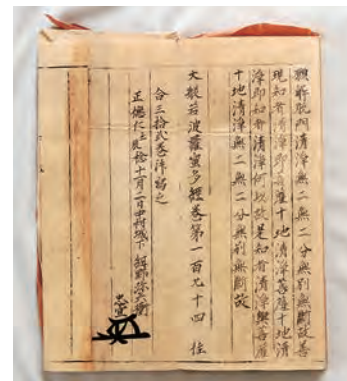 願解脫門清淨無二無二分無別無斷故善
現知者清淨即菩薩十地清淨菩薩十地清
淨即知者清淨何以故是知者清淨與菩薩
十地清淨無二無二分無別無斷故
大般若波羅蜜多經卷第一百九十四
合三拾弐巻渧写之
正徳仁壬辰稔十一月二日中村城下